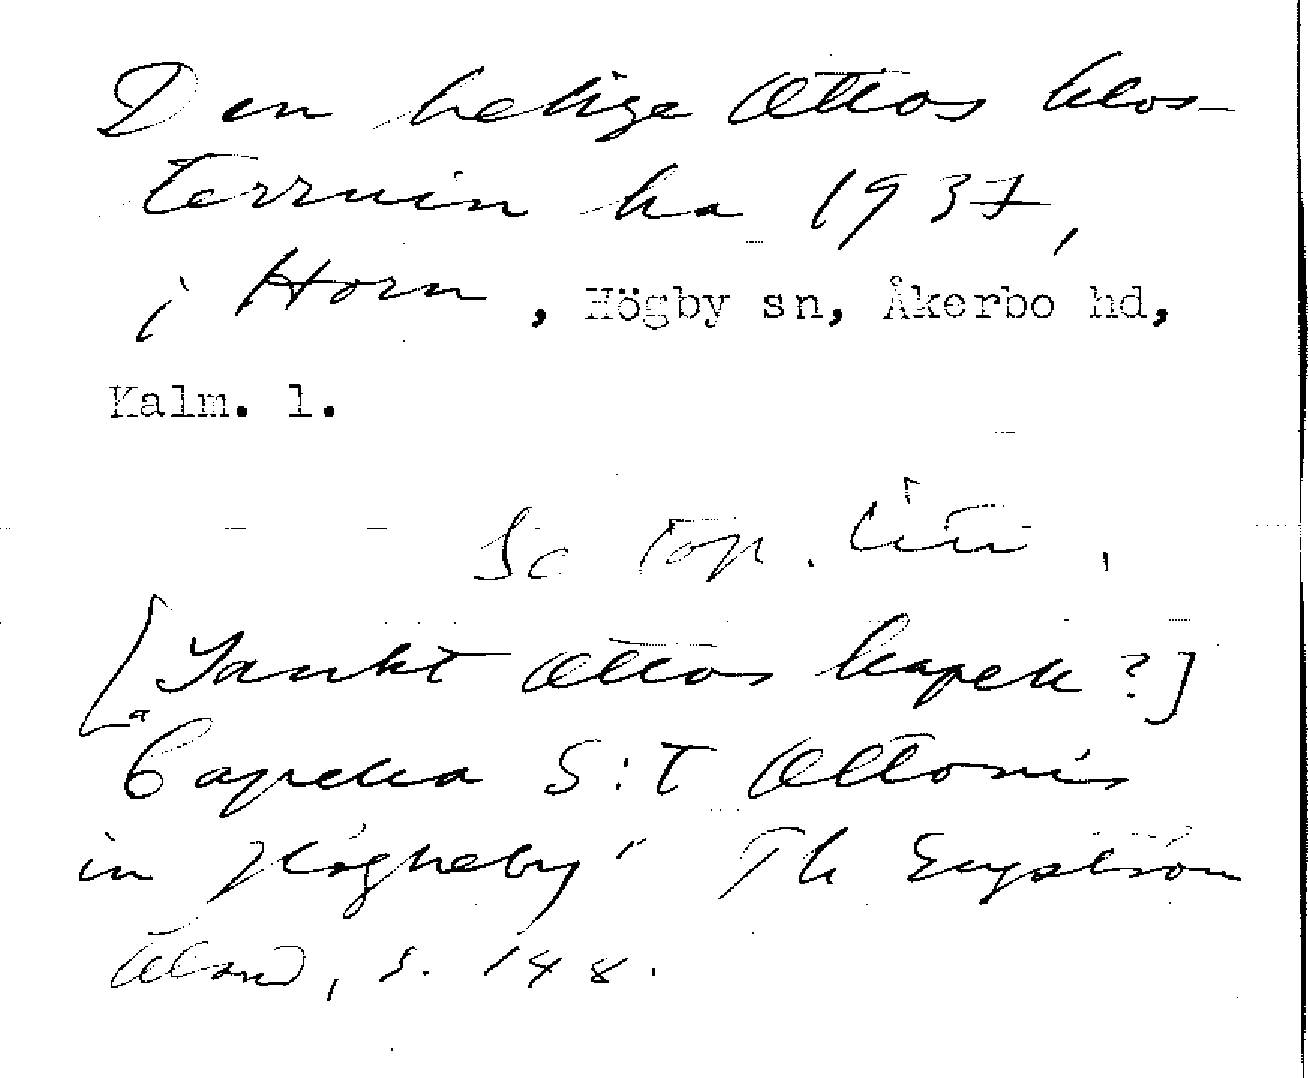 Den helige Ottos klos-
terruin ka 1937,
i Horn, Högby sn, Åkerbo hd,
Kalm. l.
Se Top. litt.
[Sankt Ottos kapell?]
"Capella S:t Ottonis
in Högheby" Th Engström
Öland, s. 148.